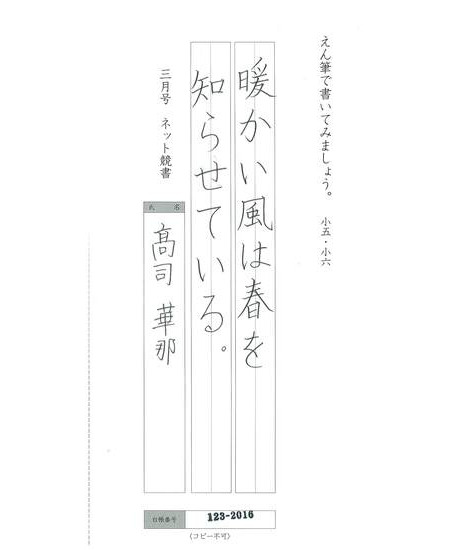 えん筆で書いてみましょう。 小五・小六
暖かい風は春を
知らせている。
三月号 ネット競書
氏 名
髙司 華那
台帳番号 123-2016
(コピー不可)